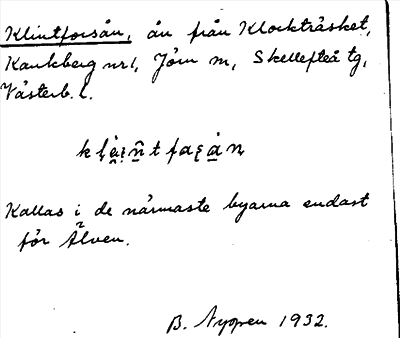 Klintforsån, ån från Klockträsket,
Kankberg nr 1, Jörn sn, Skellefteå tg,
Västerb. l.
Kallas i de närmaste byarna endast
för Älven.
B. 1932.